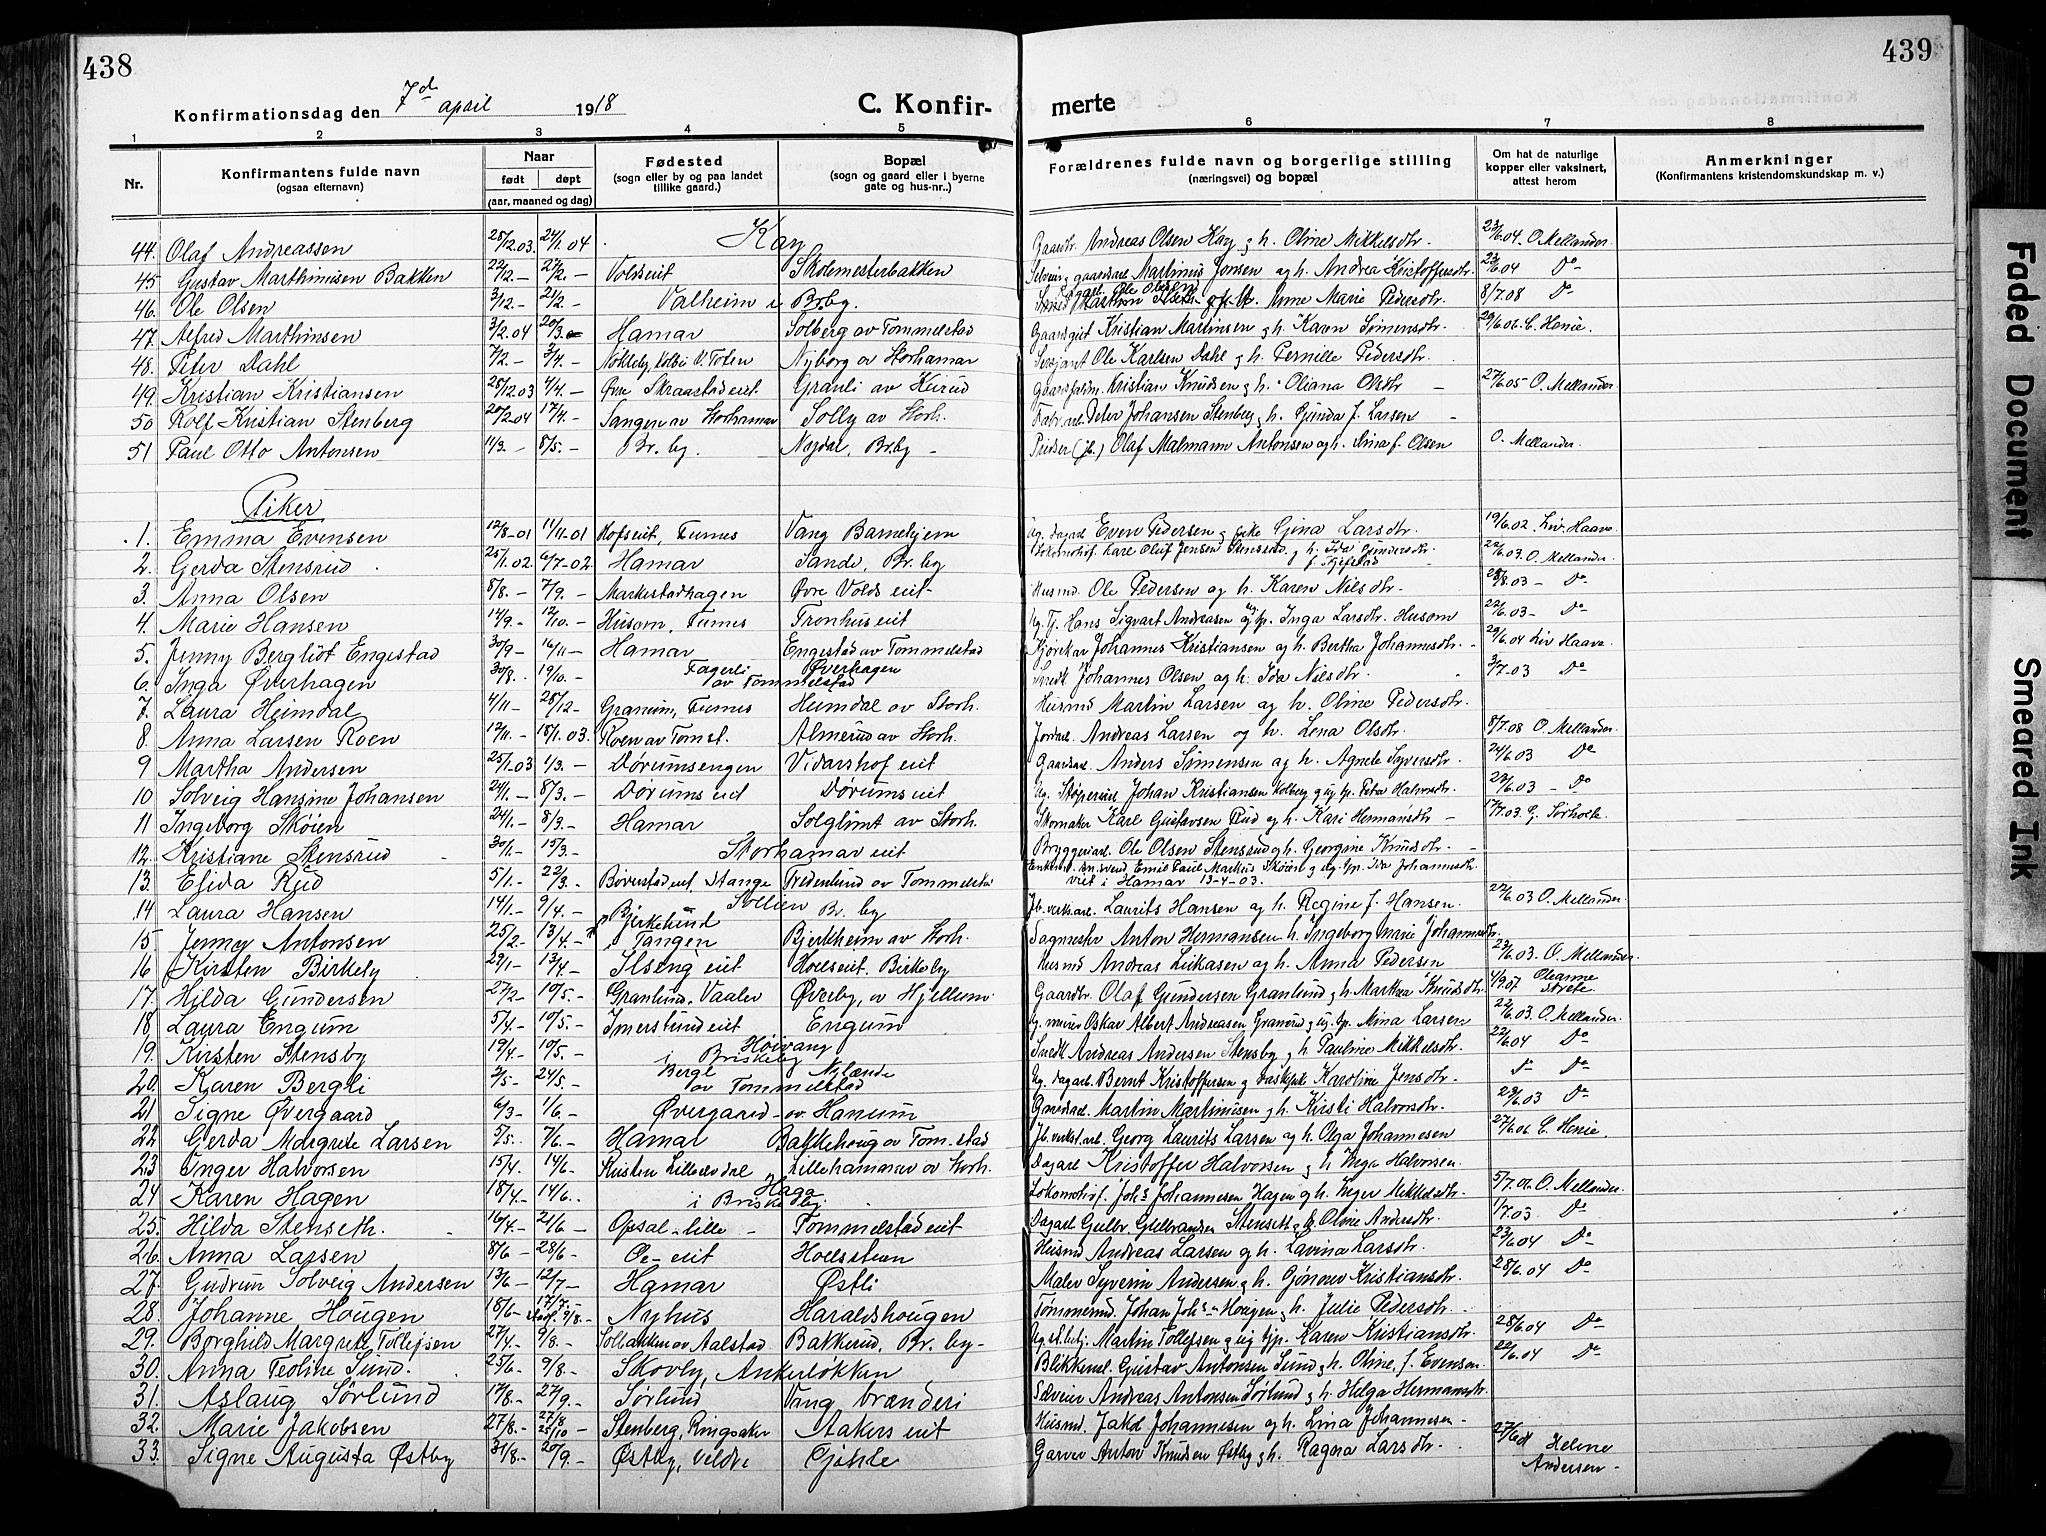 438
439
Konfirmationsdag den 7d april 1918
C. Konfir-
merte
1 2 3 4 5 6 7 8
Nr.
Konfirmantens fulde navn
(ogsaa efternavn)
Naar
født døpt
(aar, maaned og dag)
Fødested
(sogn eller by og paa landet
tillike gaard.)
Bopæl
(sogn og gaard eller i byerne
gate og hus-nr..)
Forældrenes fulde navn og borgerlige stilling
(næringsvei) og bopæl
Om hat de naturlige
kopper eller vaksinert,
attest herom
Anmerkninger
(Konfirmantens kristendomskundskap m. v.)
44. Olaf Andreassen 25/12.03. 24/1.04 Kay Gaardbr. Andreas Olsen Kay g h. Oline Mikkelsdtr. 23/6.04. O. Mellander.
45 Gustav Marthinusen Bakken 22/12.- 27/2.- Voldseiet Skolemesterbakken Martinius Jonsen og h. Andrea Kristoffersdtr. 23/6.04 Do
46. Ole Olsen 3/12.- 21/2.- Valheim i Br.by. Ole Olsen Anne Marie Pedersdtr. 8/7.08 Do
47. Alfred Marthinsen 3/2.04 20/3.- Hamar Solberg av Tommelstad Gaardgut Kristian Martinsen g h. Karen Simensdtr. 29/6.06. C. Henie.
48. Peter Dahl 7/2.- 3/4.- V. Toten Nyborg av Storhamar Sersjant Ole Karlsen Dahl g h. Pernille Pedersdtr.
49. Kristian Kristiansen 25/12.03 4/4.- Øvre Skraastadeiet. Granli av Keirud Kristian Knudsen g h. Oliana Olsdtr 27/6.05 - O. Mellander.
50 Rolf Kristian Stenberg 20/2.04 17/4.- Sangen av Storhamar Solly av Storh. Fabr.arb. Peter Johansen Stenberg, h. Gunda f. Larsen
51 Paul Otto Antonsen 11/3.- 8/5.- Br. by. Nordal, Br.by Olaf Malmann Antonsen og h. Lina f. Olsen O. Mellander.
Piker
1. Emma Evensen 12/8-01 11/11-01 Hofseiet, Furnes Vang Barnehjem Ug. dagarb. Even Pedersen g pike Gina Larsdtr. 19/6.02. Liv. Haave
2. Gerda Stensrud 25/1.02. 6/7-02 Hamar Sande, Br. by Lokomotivf. Karl Oluf Jensen Stensrud g h. Ida Gundersdtr. f. Skjefstad 22/6.03. O. Mellander.
3. Anna Olsen 8/8.- 7/9.- Markestadhagen Øvre Voldseiet Husmd. Ole Pedersen og h. Karen Nilsdtr. 28/8.03 - Do
4. Marie Hansen 14/9.- 12/10.- Husom, Furnes Fronhuseiet Ug. Tj. Hans Sigvart Andreasen og ug.p. Inga Larsdtr. Husom 22/6.03 - Do
5. Jenny Bergliot Engestad 30/9- 16/11- Hamar Engestad av Tommelstad Kjørekar Johannes Kristiansen og h. Bertha Johannesdtr. 29/6.04 Liv Haave
6. Inga Øverhagen 30/8.. 19/10.- Fagerli av Tommelstad Øverhagen Snedk. Johannes Olsen og h. Ida Nilsdtr. 3/7-03 Do
7. Laura Heimdal 4/11- 28/12- Granum, Furnes Heimdal av Storh. Husmd Martin Larsen og h. Oline Pedersdtr.
8. Anna Larsen Roen 12/11.- 18/1.03. Roen av Tomst. Almerud av Storh. Jordarb. Andreas Larsen og h. Lena Olsdtr. 8/7.08 O. Mellander.
9 Martha Andersen 25/1.03 1/3.- Dørumsengen Vidarshofeiet Gaardarb. Anders Simensen og h. Agnete Syversdtr. 24/6.03 Do
10 Solveig Hansine Johansen 24/1.- 8/3.- Dørumseiet Dørumseiet Ug. Johan Kristiansen Kolberg g ug.tp. Petra Halvorsdtr. 22/6.03 - Do
11 Ingeborg Skøien 24/1.- 8/3.- Hamar Solglimt av Storh. Skomaker Karl Gustavsen Rud og h. Kari Hermansdtr 17/7.03. G. Sørholte.
12. Kristiane Stensrud 30/1.- 15/3.- Storhamareiet Bryggeriarb. Ole Olsen Stensrud g h. Georgine Knudsdtr.
13. Elida Rud 5/1.- 22/3.- Bøverstadeiet, Stange Fredenlund av Tommelsta Emil Paul Markus Skøien g ug. tp. Ida Johannesdtr. viet i Hamar 13-4-03.
14 Laura Hansen 14/1.- 9/4.- Sollien Br. by Jb.verks.arb. Laurits Hansen og h. Regine f. Hansen. 22/6.03 O. Mellander.
15. Jenny Antonsen 25/2- 13/4.- Bjerkelund i Tangen Bjerkheim av Storh. Sagmester Anton Hermansen h. Ingeborg Marie Johannesdtr.
16 Kirsten Birkely 29/1- 13/4.- Ilsengeiet Hoelseiet. Birkeby Husmd Andreas Lukasen og h. Anna Pedersen 23/6.03. O. Mellander.
17. Hilda Gundersen 27/2- 10/5.- Granlund, Vaaler Øverby, av Hjellum. Gaardbr. Olaf Gundersen Granlund g h. Marthea Knudsdtr. 4/9.07 Oleanne
18. Laura Engum 5/4.- 10/5.- Imerslundeiet Engum Ug. murer Oskar Albert Andreasen Granerud g ug.tp. Mina Larsen 22/6.03. O. Mellander.
19. Kirsten Stensby 19/4- 10/5.- Høivang i Briskeby Snedk. Andreas Andersen Stensby g h. Pauline Mikkelsdtr. 22/6.04 Do
20. Karen Bergli 2/5- 24/5.- Bergli Nylænde av Tommelstad Ug. dagarb. Bernt Kristoffersen g Karoline Jensdtr. Do Do
21 Signe Øvergaard 6/3- 1/6.- Øvergaard av Hanum Martin Martinusen g h. Kirsti Halvorsdtr. 23/6.03 Do
22 Gerda Margrete Larsen 5/5.. 7/6.- Hamar Bakkehaug av Tom.stad Jb.verkst.arb. Georg Laurits Larsen og h. Olga Johannesen 27/6.06 C. Henie.
23 Inger Halvorsen 15/4. 14/6- Lilleelvdal Lillehammer av Storh. Dagarb Kristoffer Halvorsen g h Inga Halvorsen.
24 Karen Hagen 18/4.- 14/6.. Haga i Briskeby Lokomotivf. Johs Johannesen Hagen g h. Inger Mikkelsdtr. 5/7.06 O. Mellander.
25. Hilda Stenseth. 16/4.- 21/6- Opsal-lille Tommelstadeiet Dagarb Gulbr. Gulbrandsen Stenseth g h. Oline Andersdtr. 1/7.03 Do
26. Anna Larsen 8/6- 28/6- Oe-eiet Hoelsstuen Husmd Andreas Larsen og h. Lavina Larsdtr. 23/6.04 Do
27. Gudrun Solveig Andersen 13/6- 12/7- Hamar Østli Maler Syverin Andersen g h. Gjønner Kristiansdtr. 28/6.04 Do
28. Johanne Hougen 18/6- 17/7.- stadf. 9/8.- Nyhus Haraldshougen Tømmermd. Johan Johsn Hougen g h. Julie Pedersdtr.
29. Borghild Margrete Tollefsen 27/4.- 9/8- Solbakken av Aalstad Bakkerud, Br. by- Ug. st.betj. Martin Tollefsen g ug tjp. Karen Kristiansdtr. 28/6.04 Do
30. Anna Teoline Sund. 25/6- 9/8.- Skovly, Ankerløkken Blikkensl. Gustav Antonsen Sund g h. Oline, f. Evensen 22/6.04 Do
31. Aslaug Sørlund 17/8.- 27/9.- Sørlund Vang brænderi Andreas Antonsen Sørlund g h. Helga Hermansdtr.
32. Marie Jakobsen 27/8.- 27/8 25/10 - Stenberg, Ringsaker Aakerseiet Husmd. Jakob Johannesen og h. Lina Johannesen
33. Signe Augusta Østby 31/8.- 20/9.- Østby, Veldre Gjøhle Garver Anton Knudsen Østby g h. Ragna Larsdtr. 27/6.04 Helene Andersen
Faded Document
Smeared Ink